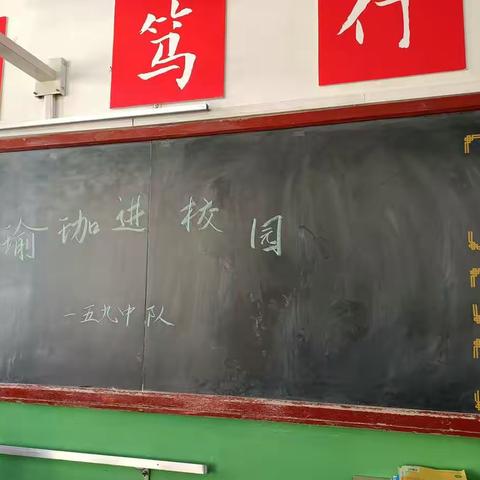 笃行
瑜珈进校园
一五九中队